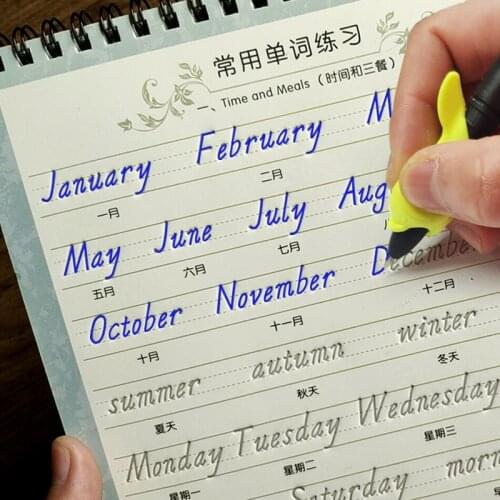 常用单词练习
一、Time and Meals（时间和三餐）
January February M
一月 二月
May June July Aug
五月 六月 七月
October November December
十月 十一月 十二月
summer autumn winter
夏天 秋天 冬天
Monday Tuesday Wednesday
星期一 星期二 星期三
Saturday morn